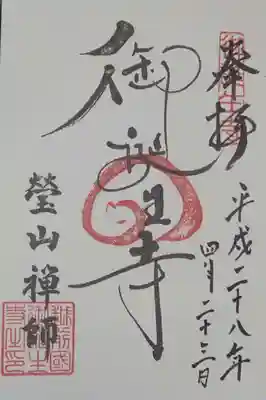 奉拝
平成二十八年
四月二十三日
御誕生寺
瑩山禪師
越前國
御誕生
寺之印